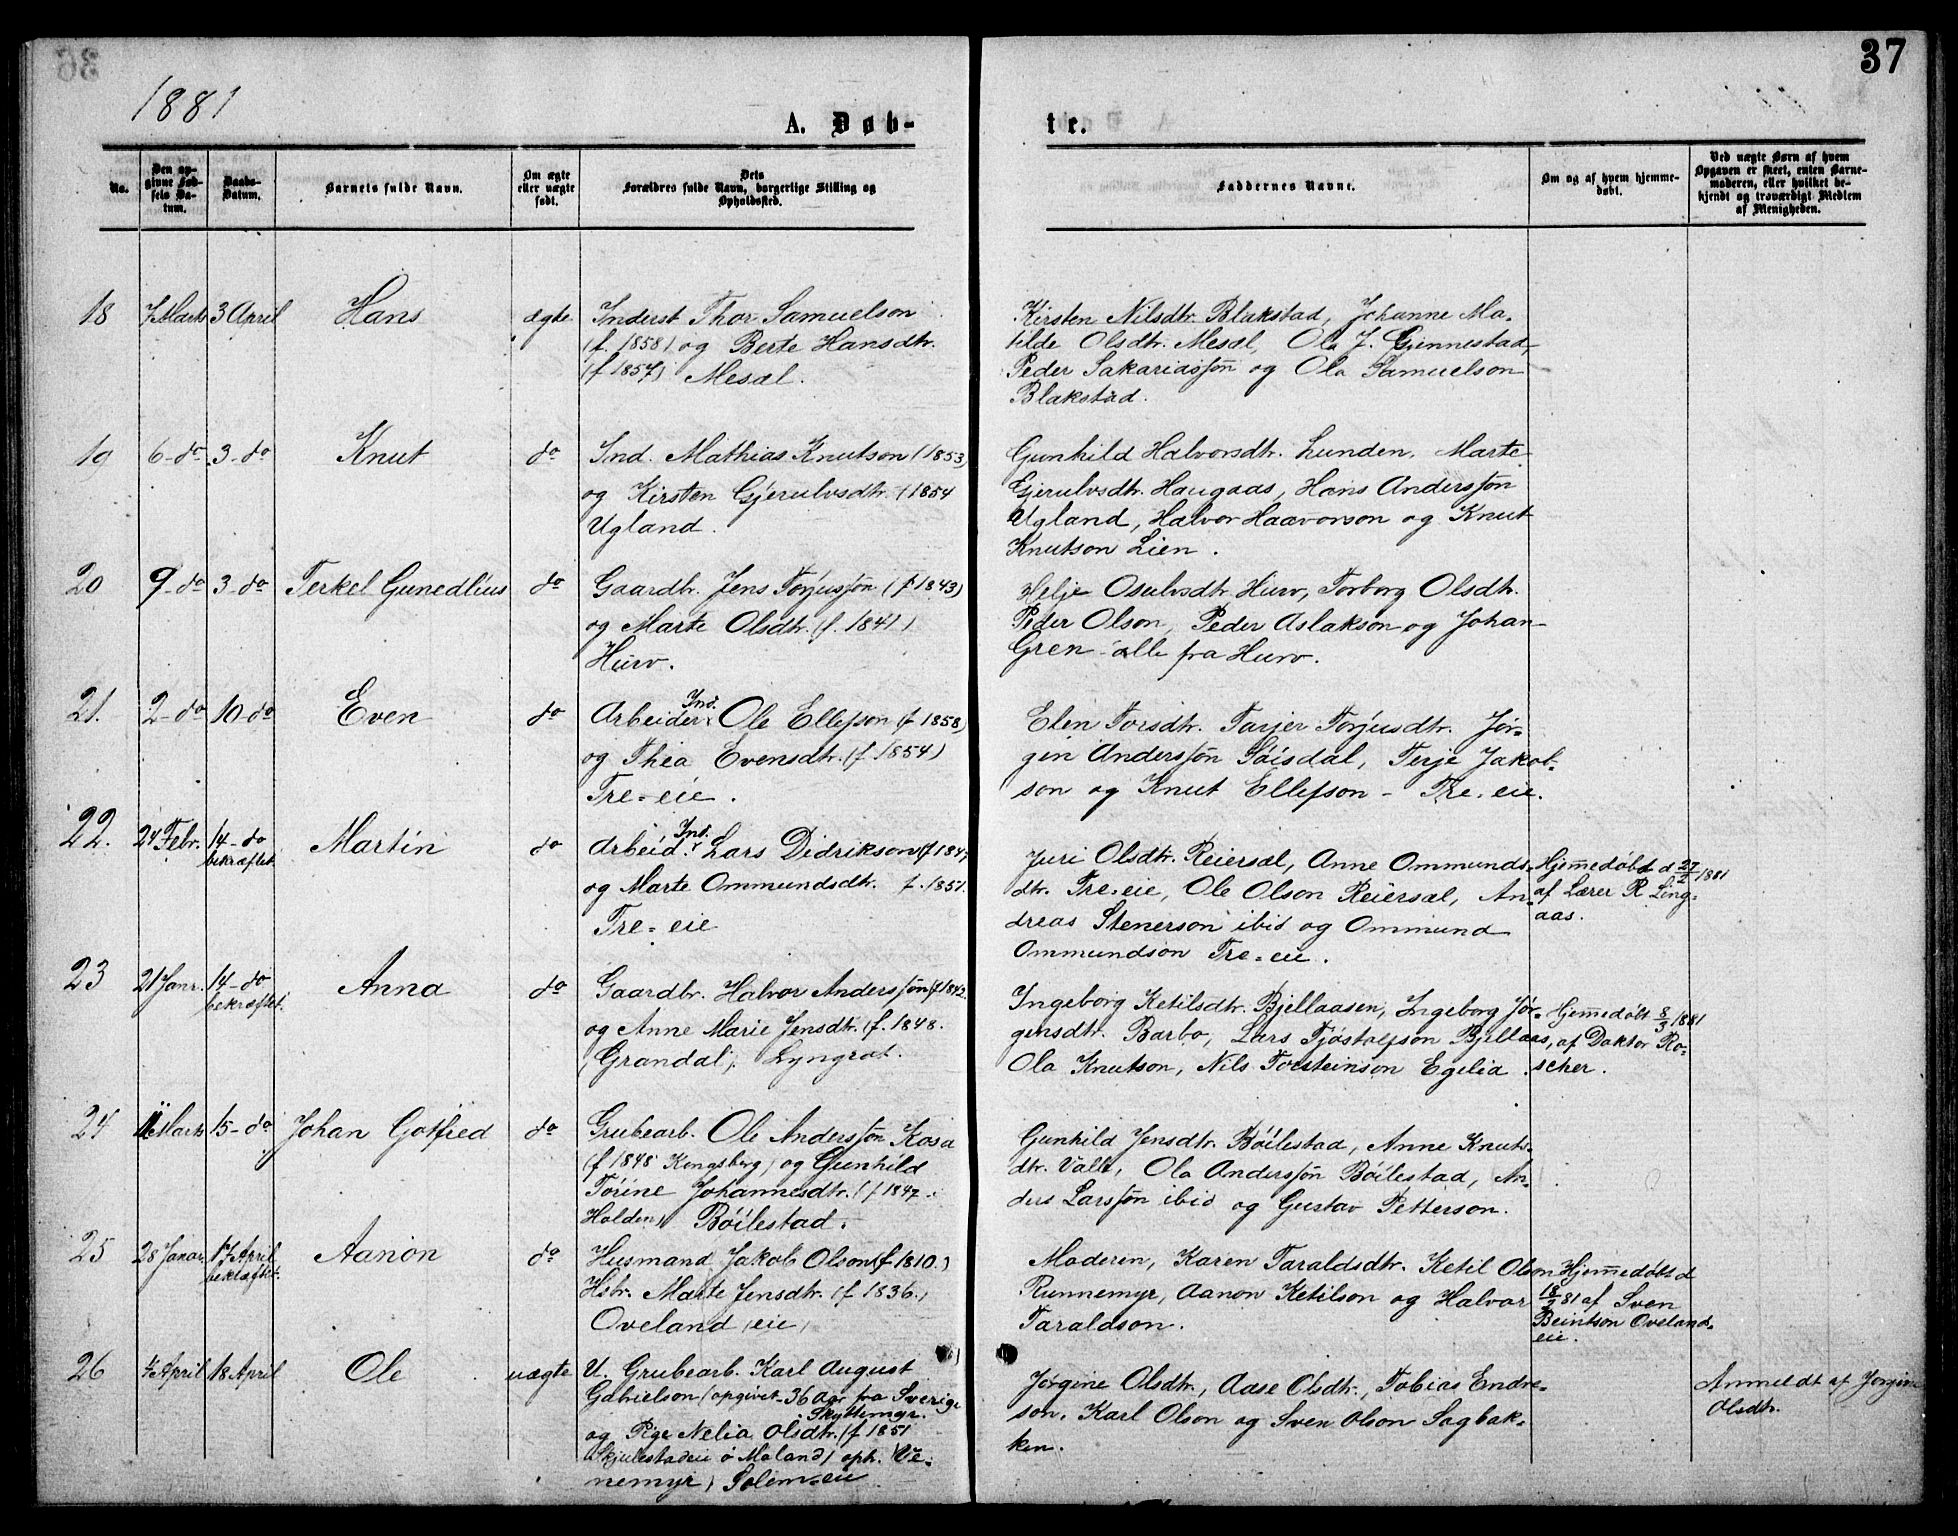 37
1881
A. Døb-
te.
No.
Den op-
givne Fød-
sels Da-
tum.
Daabs-
Datum.
Barnets fulde Navn.
Om ægte
eller uægte
født.
Dets
Forældres fulde Navn, borgerlige Stilling og
Opholdssted.
Faddernes Navne.
Om og af hvem hjemme-
døbt.
Ved uægte Børn af hvem
Opgaven er skeet, enten Barne-
moderen, eller hvilket be-
kjendt og troværdigt Medlem
af Menigheden.
18 7 Marts 3 April Hans ægte
Inderst Thor Samuelson
(f. 1858) og Berte Hansdtr.
(f 1857) Mesæl.
Kirsten Nilsdtr. Blakstad, Johanne Ma-
tilde Olsdtr. Mesæl, Ola J. Gjennestad,
Peder Sakariassøn og Ola Samuelson
Blakstad.
19 6-do 3-do Knut do
Ind. Mathias Knutson (1853)
og Kirsten Gjerulvsdtr. (1854
Ugland.
Gunhild Halvorsdtr. Lunden, Marte
Gjerulvsdtr. Haugaas, Hans Anderssøn
Ugland, Halvor Haavorson og Knut
Knutson Lien.
20 9-do 3-do Terkel Gunedlius do
Gaardbr. Jens Torjussøn (f. 1843)
og Marte Olsdtr. (f. 1841)
Hurv.
Helje Osulvsdtr. Hurv, Torborg Olsdtr.
Peder Olson, Peder Aslakson og Johan
Gren - alle fra Hurv.
21. 2-do 10-do Even do
Ind.
Arbeider Ole Ellefson (f 1858)
og Thea Evensdtr. (f 1854)
Tre-eie.
Elen Torsdtr. Tarjer Torjusdtr. Jør-
gen Anderssøn Søisdal, Terje Jakob-
son og Knut Ellefson - Tre-eie.
22. 24 Febr. 14-do Martin do
bekræftet
Ind.
Arbeid. Lars Didrikson (f 1847
og Marte Ommundsdtr. f. 1851.
Tre-eie
Juri Olsdtr. Reiersæl, Anne Ommunds-
dtr. Tre-eie, Ole Olson Reiersæl, An-
dreas Stenerson ibid og Ommund
Ommundson Tre-eie.
Hjemmedøbt d 27/2 1881
af Lærer R Ling-
aas.
23 21 Janr. 14-do Anna do
bekræftet.
Gaardbr. Halvor Anderssøn (f 1842.
og Anne Marie Jensdtr. (f. 1848.
(Grandal), Lyngrot.
Ingeborg Ketilsdtr. Bjellaasen, Ingeborg Jør-
gensdtr. Barbo, Lars Fjøstolfson Bjellaas,
Ola Knutson, Nils Torsteinson Egelia.
Hjemmedøbt 8/3 1881
af Doktor Ro-
scher.
24 11 Marts 15-do Johan Gotfred do
Grubearb. Ole Anderssøn Kosa
(f 1848 Kongsberg) og Gunhild
Torine Johannesdtr. (f 1847
Holden) Bøilestad.
Gunhild Jensdtr. Bøilestad, Anne Knuts-
dtr. Valle, Ola Anderssøn Bøilestad, An-
ders Larssøn ibid og Gustav Petterson.
25 28 Januar 17 April Aanon do
bekræftet.
Husmand Jakob Olson (f 1810.)
Hstr. Marte Jensdtr. (f 1836.)
Oveland (eie)
Moderen, Karen Taraldsdtr. Ketil Olson
Runnemyr, Aanon Ketilson og Halvor
Taraldson.
Hjemmedøbt d
81 af Sven
Beintson Oveland-
eie.
26 April 18 April Ole uægte
U. Grubearb. Karl August
Gabrielson (opgivet 36 Aar fra Sverige
Skyttemyr.
og Pige Nelia Olsdtr. (f 1851
Skjulestadeie ø Moland) oph. Ve-
nemyr, Solem-eie
Jørgine Olsdtr., Aase Olsdtr., Tobias Endre-
son, Karl Olson og Sven Olson Sagbak-
ken.
Anmeldt af Jørgine
Olsdtr.